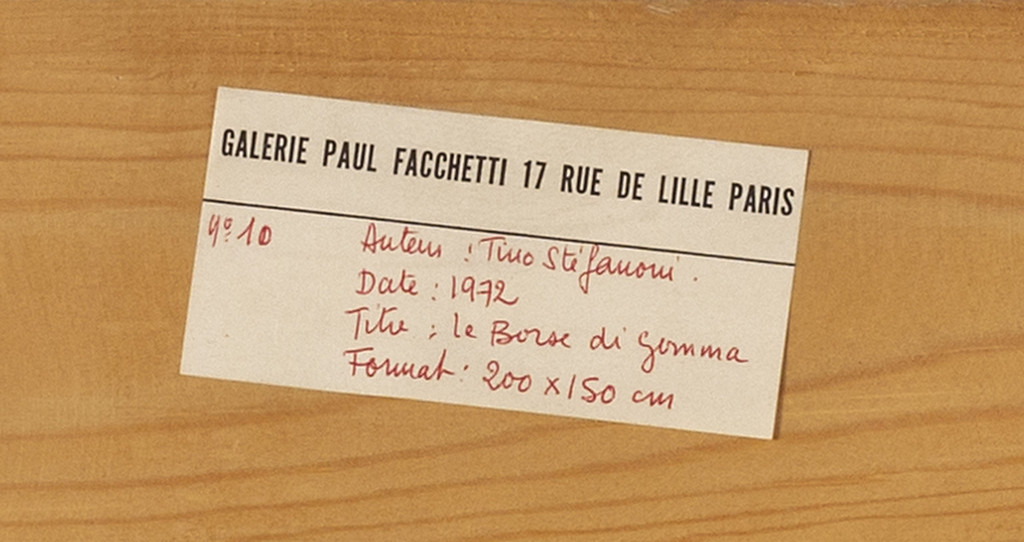 GALERIE PAUL FACCHETTI 17 RUE DE LILLE PARIS
Nº 10
Auteur : Tino Stéfanoni.
Date : 1972
Titre : le Borse di gomma
Format : 200 x 150 cm